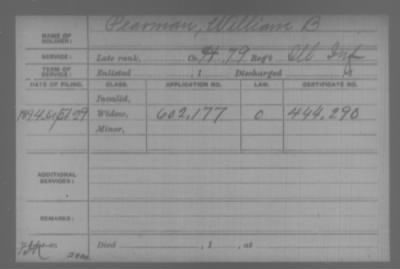 Pearman, William B
NAME OF SOLDIER:
SERVICE: Late rank, Co. H. 79 Reg't Ill Inf
TERM OF SERVICE: Enlisted , 1 Discharged , 1
DATE OF FILING. CLASS. APPLICATION NO. LAW. CERTIFICATE NO.
Invalid,
1894 Sept 29 Widow, 602,177 0 444,290
Minor,
ADDITIONAL SERVICES:
REMARKS:
Died , 1 , at